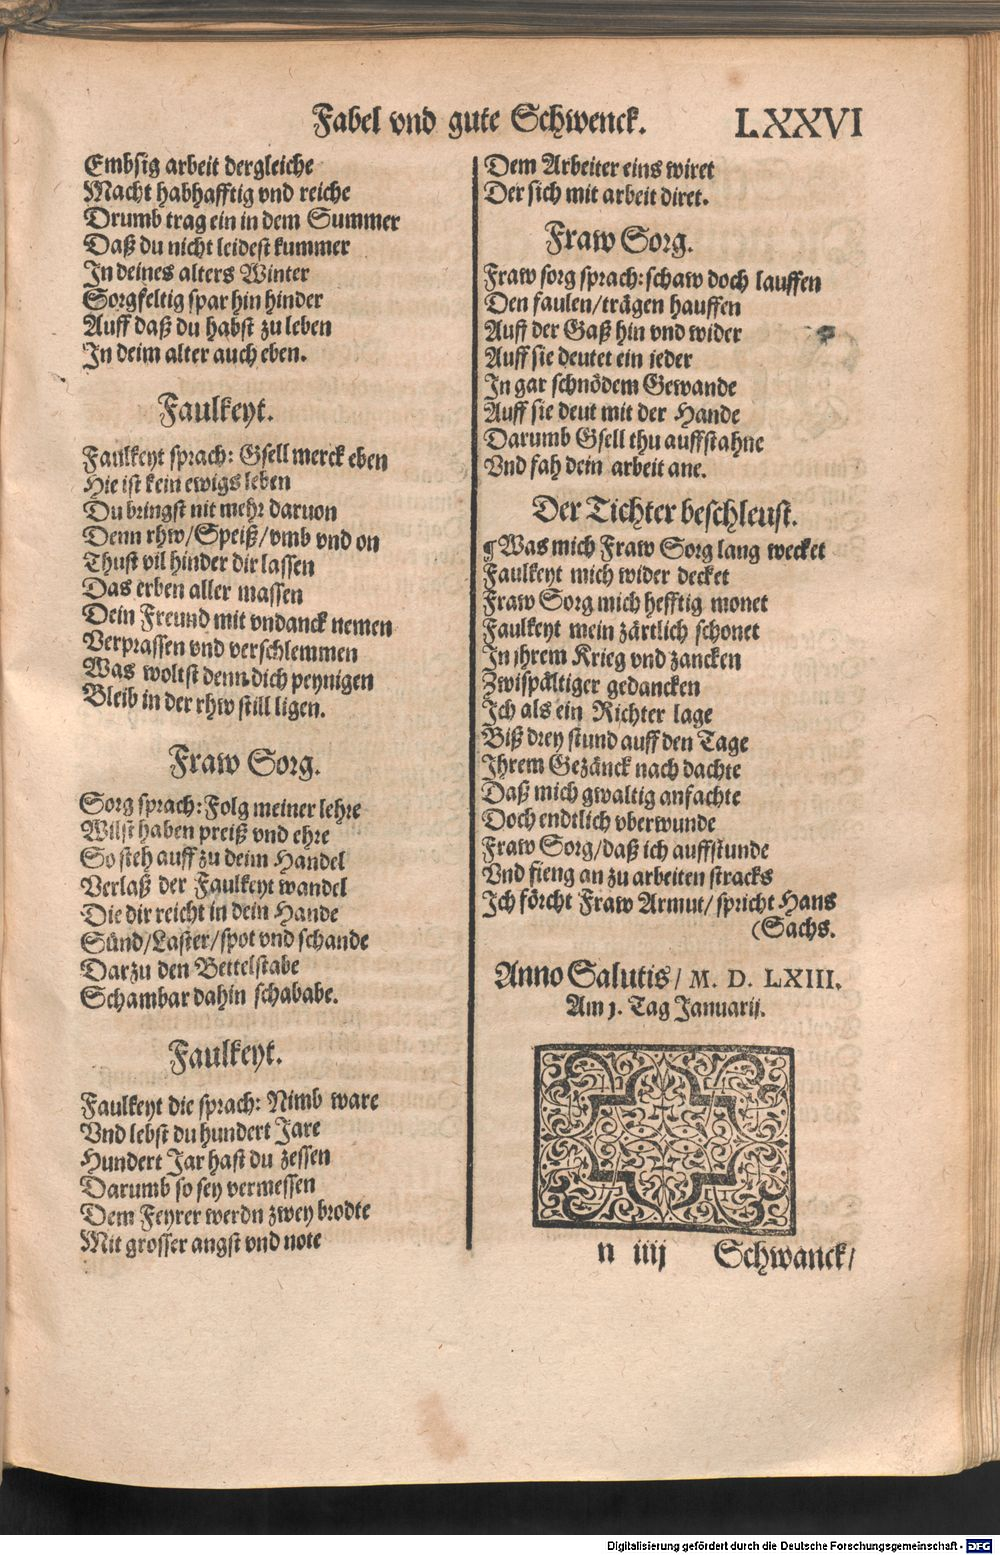 Fabel vnd gute Schwenck. LXXVI
Embsig arbeit dergleiche
Macht habhafftig vnd reiche
Drumb trag ein in dem Summer
Daß du nicht leidest kummer
In deines alters Winter
Sorgfeltig spar hin hinder
Auff daß du habst zu leben
In deim alter auch eben.
Faulkeyt.
Faulkeyt sprach: Gsell merck eben
Hie ist kein ewigs leben
Du bringst nit mehr daruon
Denn rhw/Speiß/vmb vnd on
Thust vil hinder dir lassen
Das erben aller massen
Dein Freund mit vndanck nemen
Verprassen vnd verschlemmen
Was woltst denn dich peynigen
Bleib in der rhw still ligen.
Fraw Sorg.
Sorg sprach: Folg meiner lehre
Wilst haben preiß vnd ehre
So steh auff zu deim Handel
Verlaß der Faulkeyt wandel
Die dir reicht in dein Hande
Sünd/Laster/spot vnd schande
Darzu den Bettelstabe
Schambar dahin schababe.
Faulkeyt.
Faulkeyt die sprach: Nimb ware
Vnd lebst du hundert Jare
Hundert Jar hast du zessen
Darumb so sey vermessen
Dem Feyrer werdn zwey brodte
Mit grosser angst vnd note
Dem Arbeiter eins wiret
Der sich mit arbeit diret.
Fraw Sorg.
Fraw sorg sprach: schaw doch lauffen
Den faulen/trägen hauffen
Auff der Gaß hin vnd wider
Auff sie deutet ein jeder
In gar schnödem Gewande
Auff sie deut mit der Hande
Darumb Gsell thu auffstahne
Vnd fah dein arbeit ane.
Der Tichter beschleust.
¶ Was mich Fraw Sorg lang wecket
Faulkeyt mich wider decket
Fraw Sorg mich hefftig monet
Faulkeyt mein zärtlich schonet
In jhrem Krieg vnd zancken
Zwispältiger gedancken
Ich als ein Richter lage
Biß drey stund auff den Tage
Ihrem Gezänck nach dachte
Daß mich gwaltig anfachte
Doch endtlich vberwunde
Fraw Sorg/daß ich auffstunde
Vnd fieng an zu arbeiten stracks
Ich förcht Fraw Armut/ spricht Hans
(Sachs.
Anno Salutis/ M. D. LXIII.
Am j. Tag Januarij.
n iiij Schwanck/
Digitalisierung gefördert durch die Deutsche Forschungsgemeinschaft - DFG